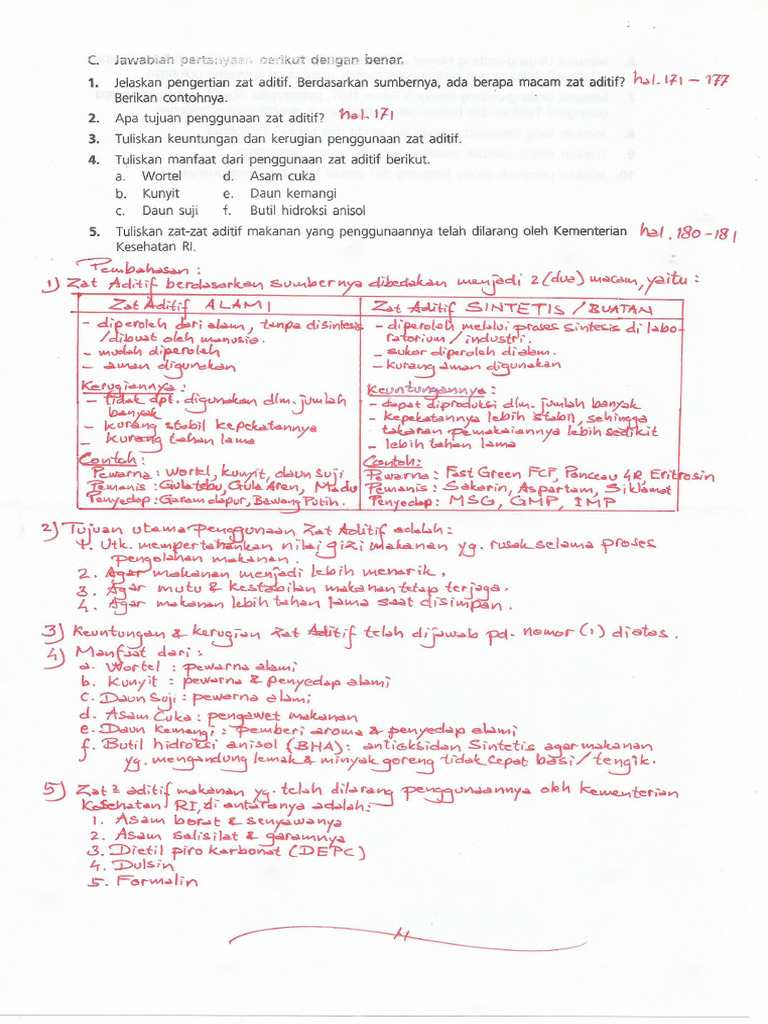 C. Jawablah pertanyaan berikut dengan benar.
1. Jelaskan pengertian zat aditif. Berdasarkan sumbernya, ada berapa macam zat aditif? hal. 171 – 177
Berikan contohnya.
2. Apa tujuan penggunaan zat aditif? hal. 171
3. Tuliskan keuntungan dan kerugian penggunaan zat aditif.
4. Tuliskan manfaat dari penggunaan zat aditif berikut.
a. Wortel d. Asam cuka
b. Kunyit e. Daun kemangi
c. Daun suji f. Butil hidroksi anisol
5. Tuliskan zat-zat aditif makanan yang penggunaannya telah dilarang oleh Kementerian hal. 180-181
Kesehatan RI.
Pembahasan :
1) Zat Aditif berdasarkan sumbernya dibedakan menjadi 2 (dua) macam, yaitu :
Zat Aditif ALAMI
- diperoleh dari alam, tanpa disintesis
/dibuat oleh manusia.
- mudah diperoleh
- aman digunakan
Kerugiannya :
- tidak dpt. digunakan dlm. jumlah
banyak
- kurang stabil kepekatannya
- kurang tahan lama
Contoh:
Pewarna : wortel, kunyit, daun suji
Pemanis : Gula tebu, Gula Aren, Madu
Penyedap : Garam dapur, Bawang Putih.
Zat Aditif SINTETIS / BUATAN
- diperoleh melalui proses sintesis di labo-
ratorium / industri.
- sukar diperoleh di alam.
- kurang aman digunakan
Keuntungannya :
- dapat diproduksi dlm. jumlah banyak
- kepekatannya lebih stabil, sehingga
takaran pemakaiannya lebih sedikit
- lebih tahan lama
Contoh:
Pewarna : Fast Green FCF, Panceau 4R Eritrosin
Pemanis : Sakarin, Aspartam, Siklamat
Penyedap : MSG, GMP, IMP
2) Tujuan utama penggunaan Zat Aditif adalah :
1. Utk. mempertahankan nilai gizi makanan yg. rusak selama proses
pengolahan makanan.
2. Agar makanan menjadi lebih menarik.
3. Agar mutu & kestabilan makanan tetap terjaga.
4. Agar makanan lebih tahan lama saat disimpan.
3) Keuntungan & kerugian Zat Aditif telah dijawab pd. nomor (1) diatas.
4) Manfaat dari :
a. Wortel : pewarna alami
b. Kunyit : pewarna & penyedap alami
c. Daun Suji : pewarna alami
d. Asam Cuka : pengawet makanan
e. Daun Kemangi : pemberi aroma & penyedap alami
f. Butil hidroksi anisol (BHA) : antioksidan Sintetis agar makanan
yg. mengandung lemak & minyak goreng tidak cepat basi / tengik.
5) Zat² aditif makanan yg. telah dilarang penggunaannya oleh Kementerian
Kesehatan RI, di antaranya adalah :
1. Asam borat & senyawanya
2. Asam salisilat & garamnya
3. Dietil piro karbonat (DEPC)
4. Dulsin
5. Formalin